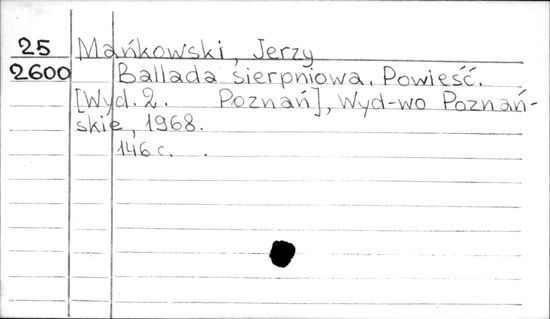 25 Mańkowski, Jerzy
2600 Ballada sierpniowa. Powieść.
[Wyd. 2. Poznań], Wyd-wo Poznań-
skie, 1968.
146 c.